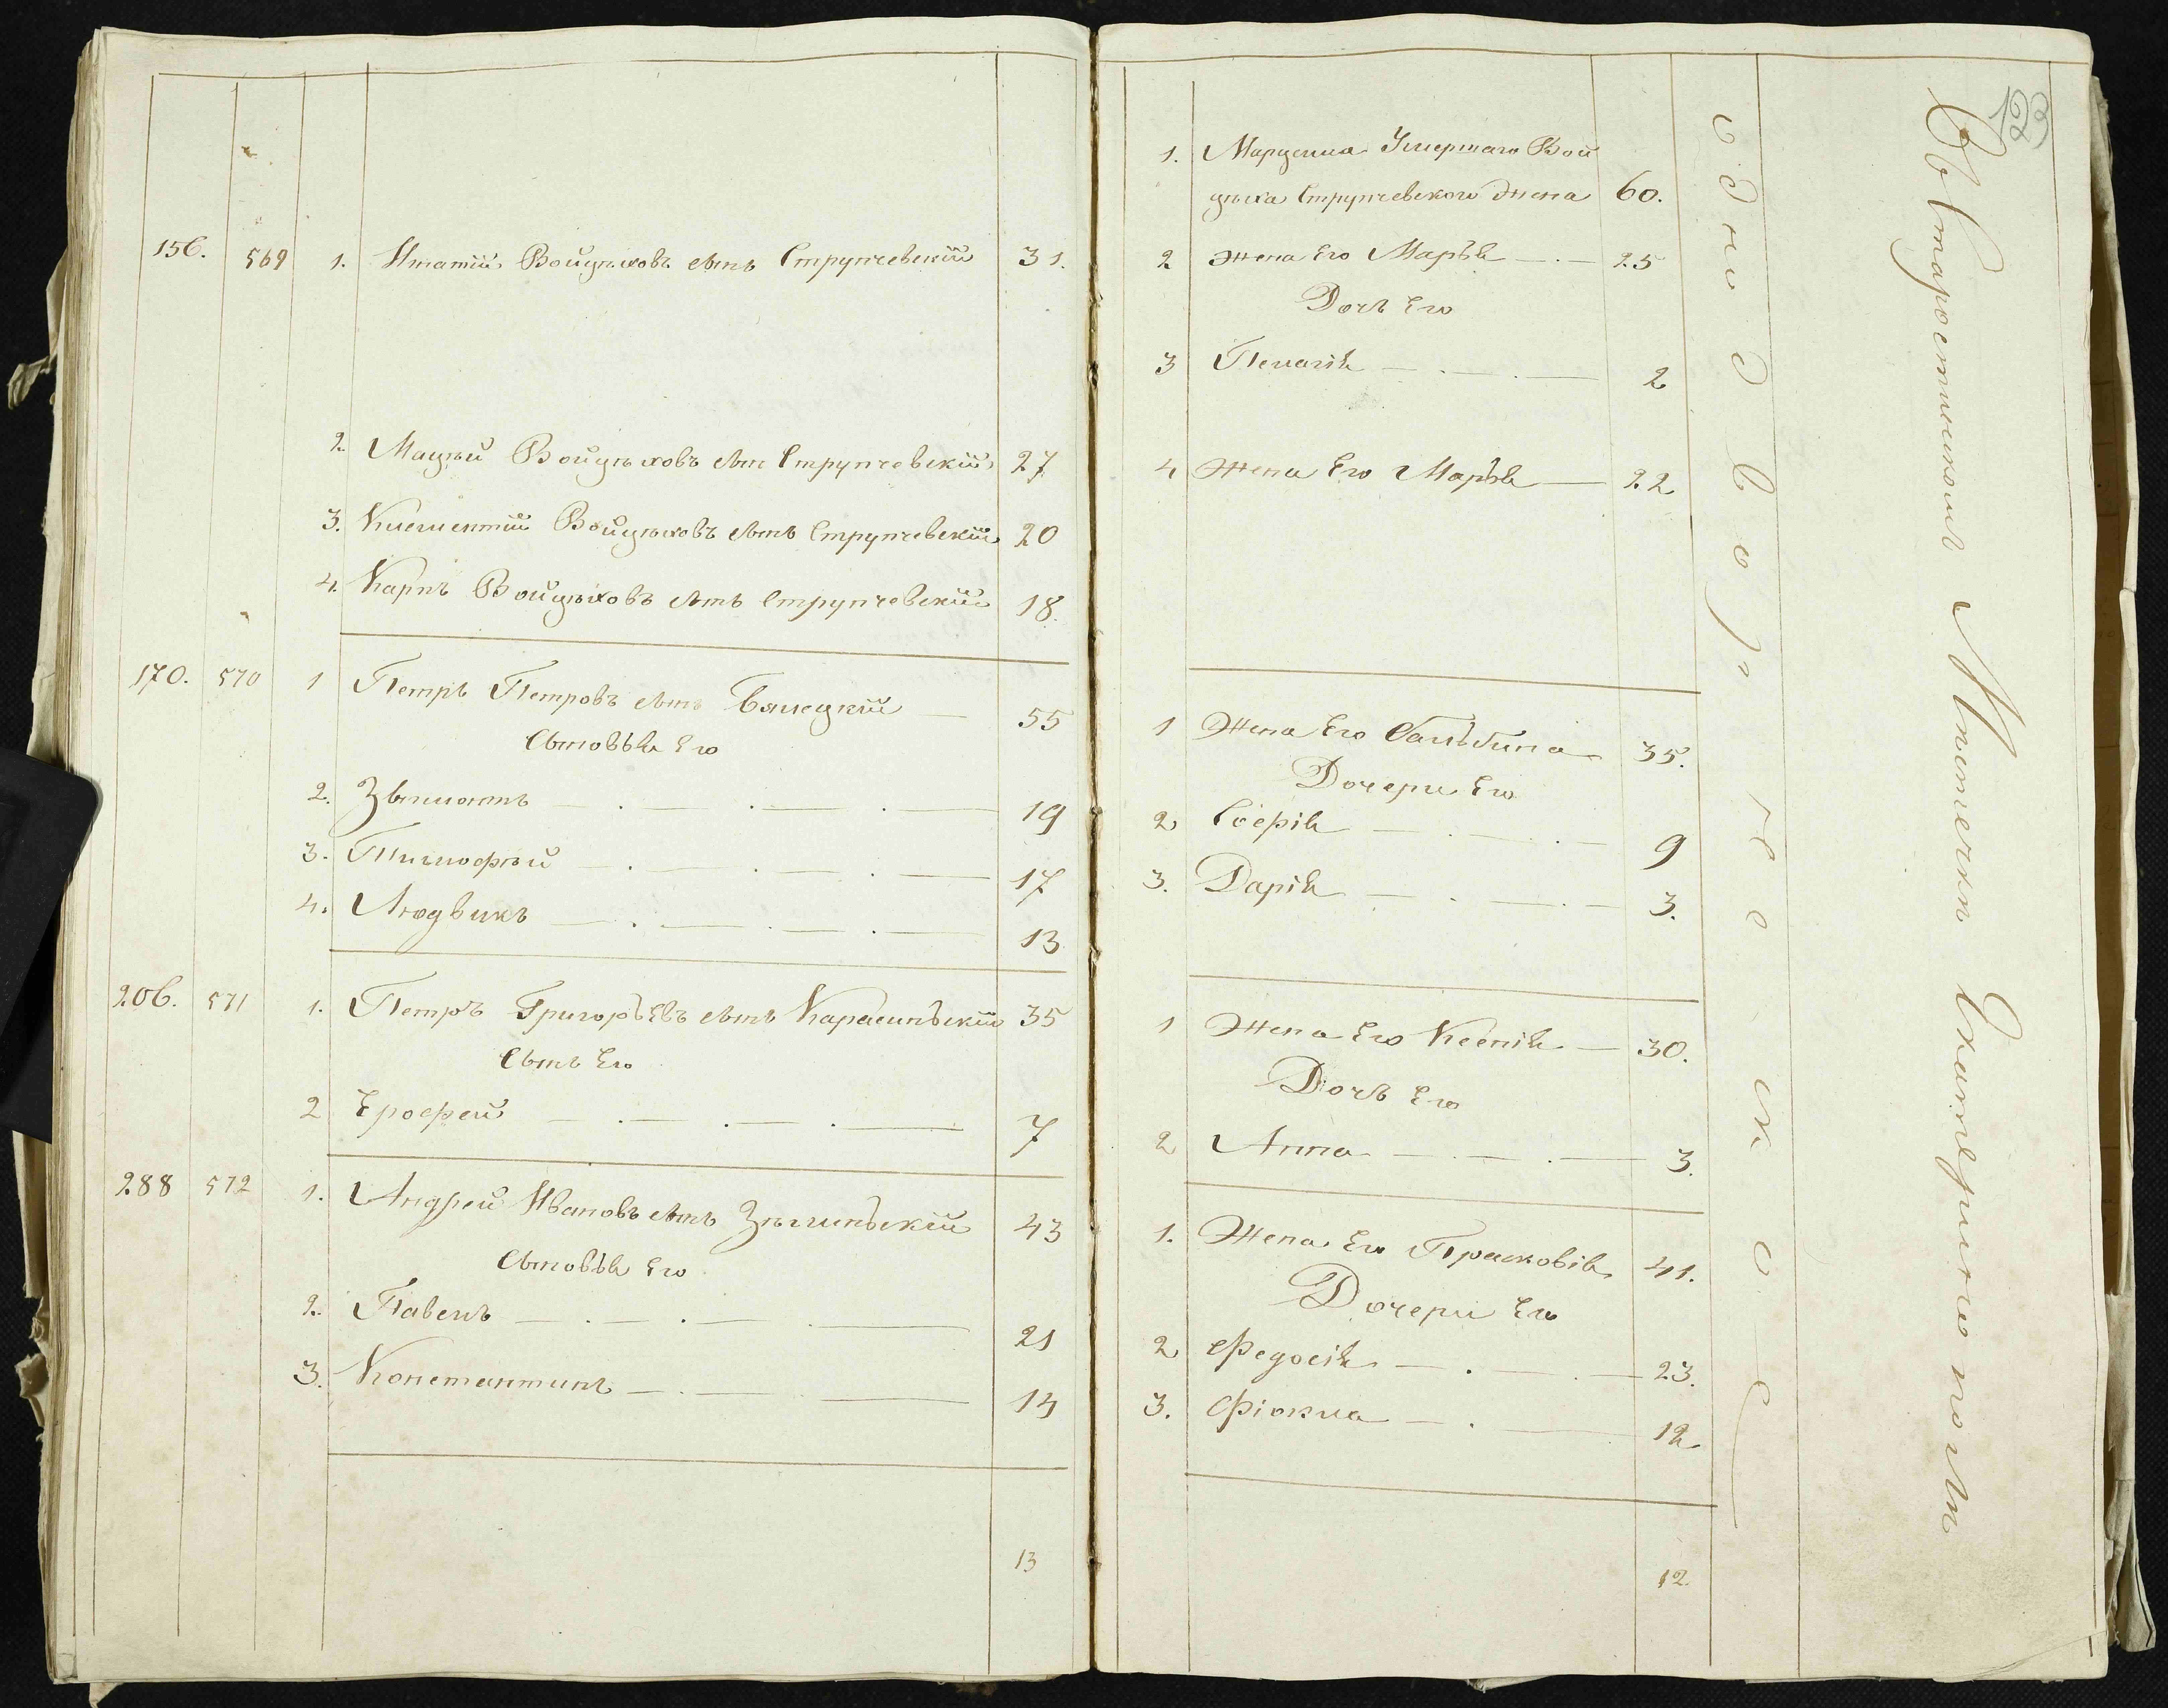 156. 569 1. Игнатій Войцѣховъ сынъ Струпчевскій 31.
2. Мацѣй Войцѣховъ сынъ Струпчевскій 27
3. Климентій Войцѣховъ сынъ Струпчевскій 20
4. Карпъ Войцѣховъ сынъ Струпчевскій 18.
170. 570 1 Петръ Петровъ сынъ Бялецкій — 55
Сыновья Его
2. Зыгмонтъ — . — . — . — 19
3. Тимофѣй — . — . — . — 17
4. Людвикъ — . — . — . — 13
206. 571 1. Петръ Григорьевъ сынъ Карасинскій 35
Сынъ Его
2 Ерофей — . — . — . — 7
288 572 1. Андрей Ивановъ сынъ Зѣлинскій 43
Сыновья Его
2. Павелъ — . — . — . — 21
3. Константинъ — . — — 14
13
123
1. Марцела Умершаго Вой
цѣха Струпчевского Жена 60.
2 Жена Его Марья — . — 25
Дочь Его
3 Пелагія — . — . — 2
4 Жена Его Марья — 22
1 Жена Его Бальбина 35.
Дочери Его
2 Софія — . — . — 9
3. Дарія — . — . — 3.
1 Жена Его Ксенія — 30.
Дочь Его
2 Анна — . — . — 3.
1. Жена Его Прасковія 41.
Дочери Его
2 Федосія — . — . — 23.
3. Фіокла — . — 12
12
однодворческое
Въ Старостинскомъ Мѣстечкѣ Екатеринполѣ